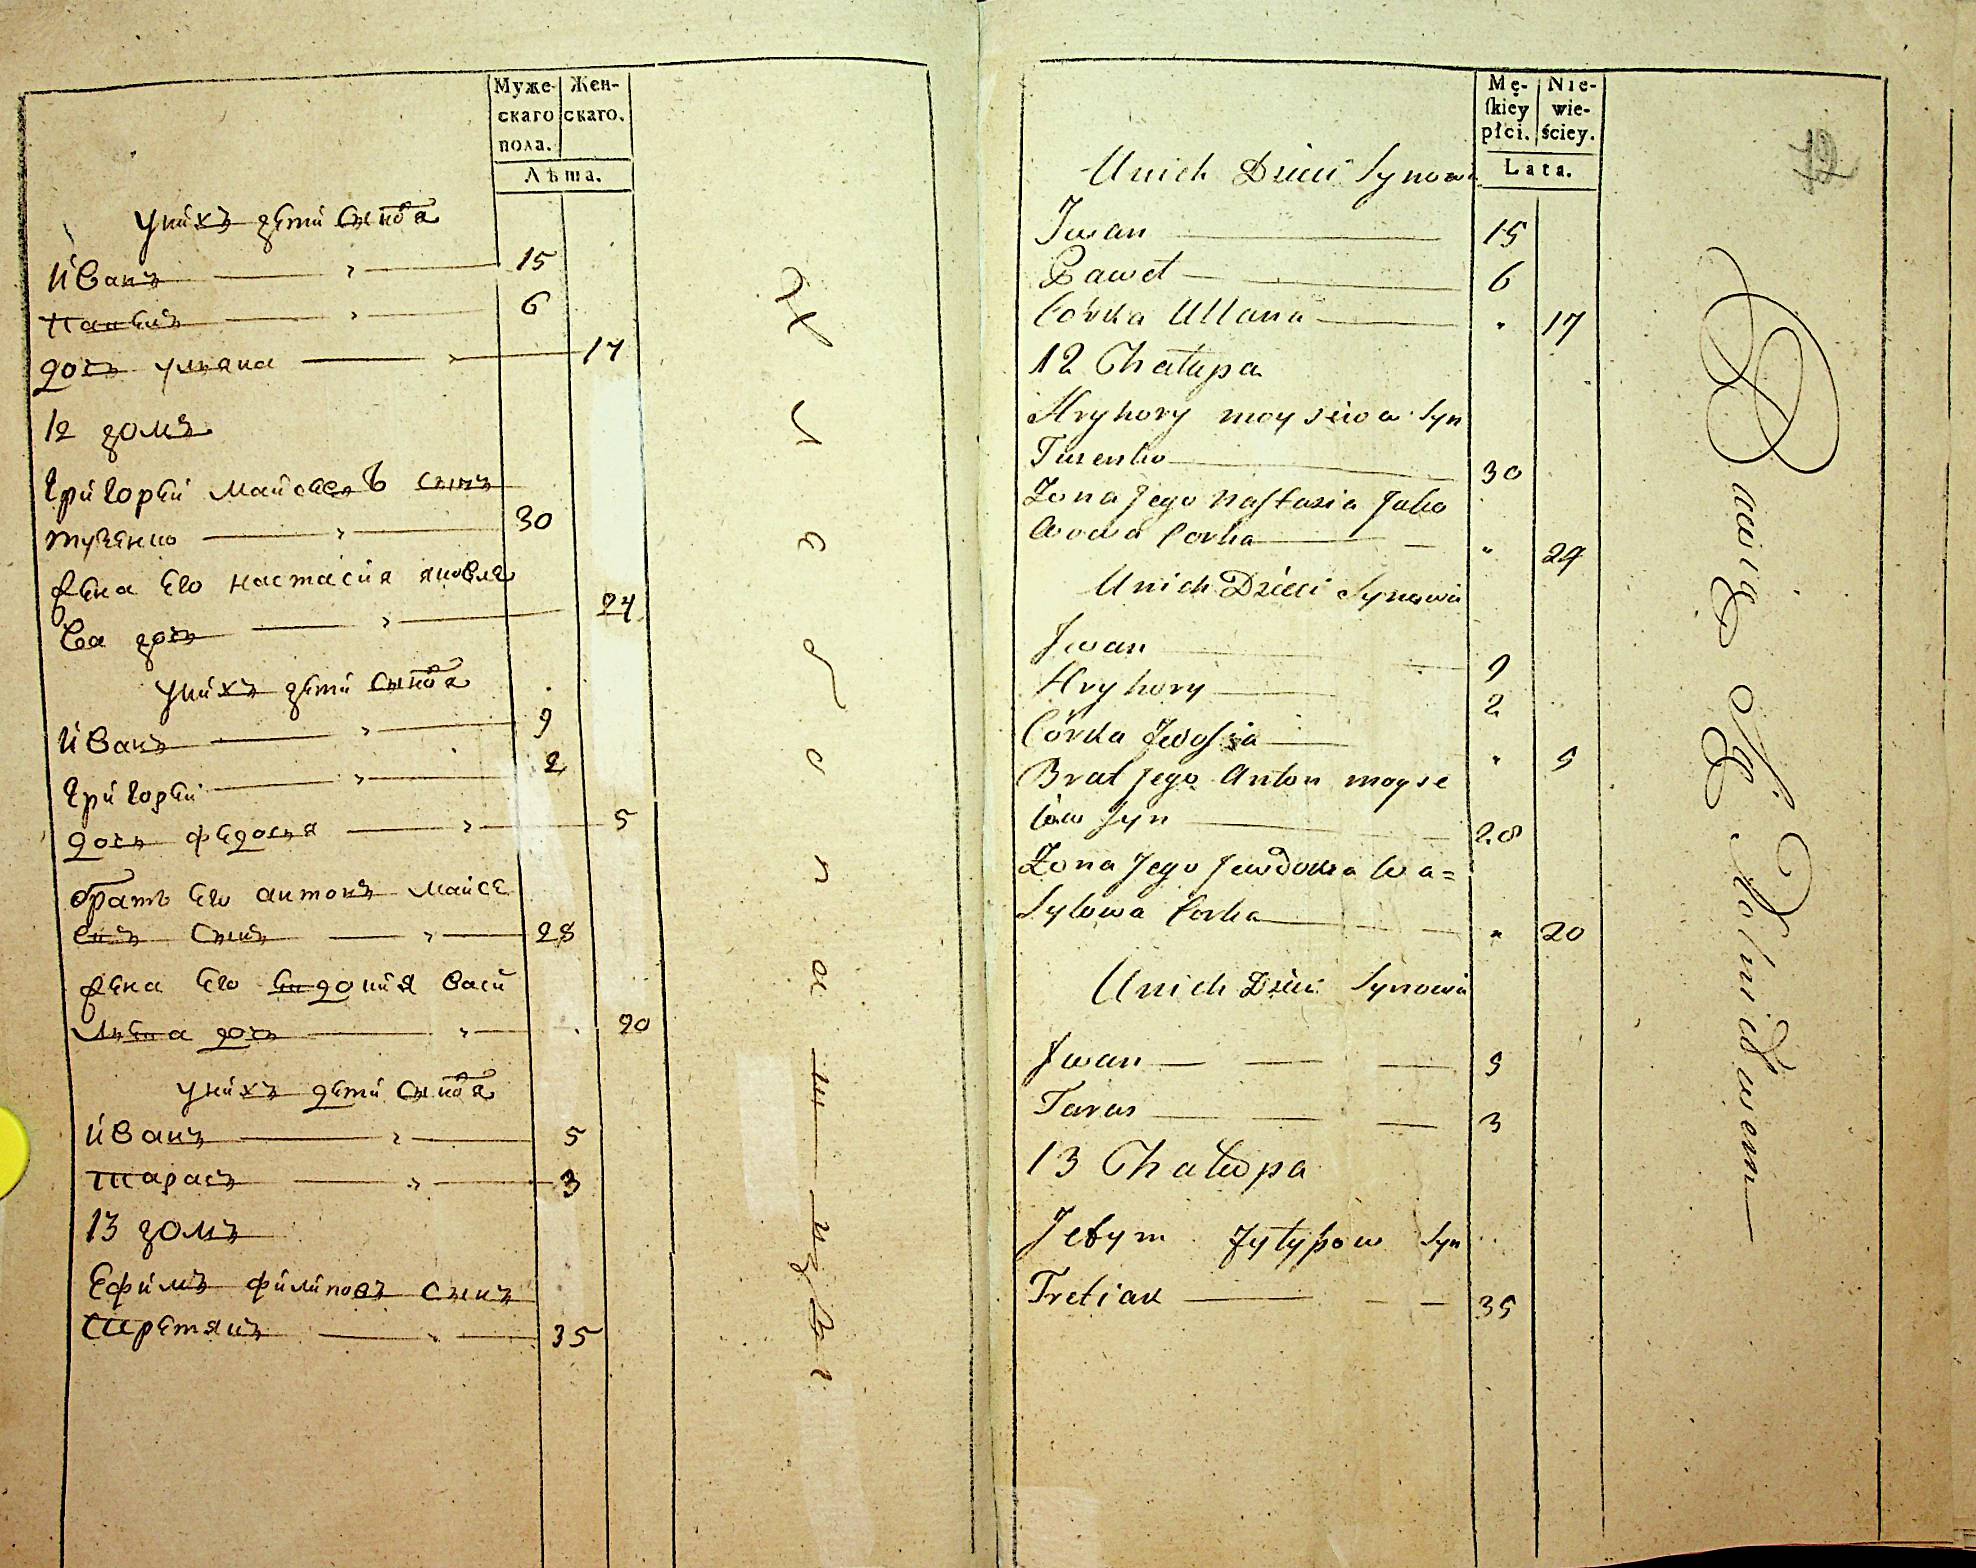 Муже-
скаго
пола.
Жен-
скаго.
Лѣта.
унихъ дети сынова
Иванъ 15
Павелъ 6
дочь уляна 17
12 домъ
Григорей майсеевъ сынъ
тузенко 30
жена его настасия яковле
ва дочь 24
унихъ дети сынова
Иванъ 9
Григорей 2
дочь федося 5
братъ его антонъ майсе
евъ сынъ 28
жена его евдокия васи
льева дочь 20
унихъ дети сынова
Иванъ 5
тарасъ 3
13 домъ
Ефимъ филиповъ сынъ
третякъ 35
Mę-
ſkiey
płci.
Nie-
wie-
ściey.
Lata.
12
Unich Dzieci Synowi
Jwan 15
Paweł 6
Córka Ullana " 17
12 Chałupa
Hryhory moysiewa Syn
30
Zona Jego Naſtazia Jako
wowa Corka " 24
Unich Dzieci Synowie
Jwan 9
Hryhory 2
Córka Jwdoſia " 5
Brat Jego Anton moyse
iew Syn 28
Zona Jego Jewdokia Wa=
Sylowa Corka " 20
Unich Dzieci Synowie
Jwan 5
Taras 3
13 Chałupa
Jefym Fyłypow Syn
Tretiak 35